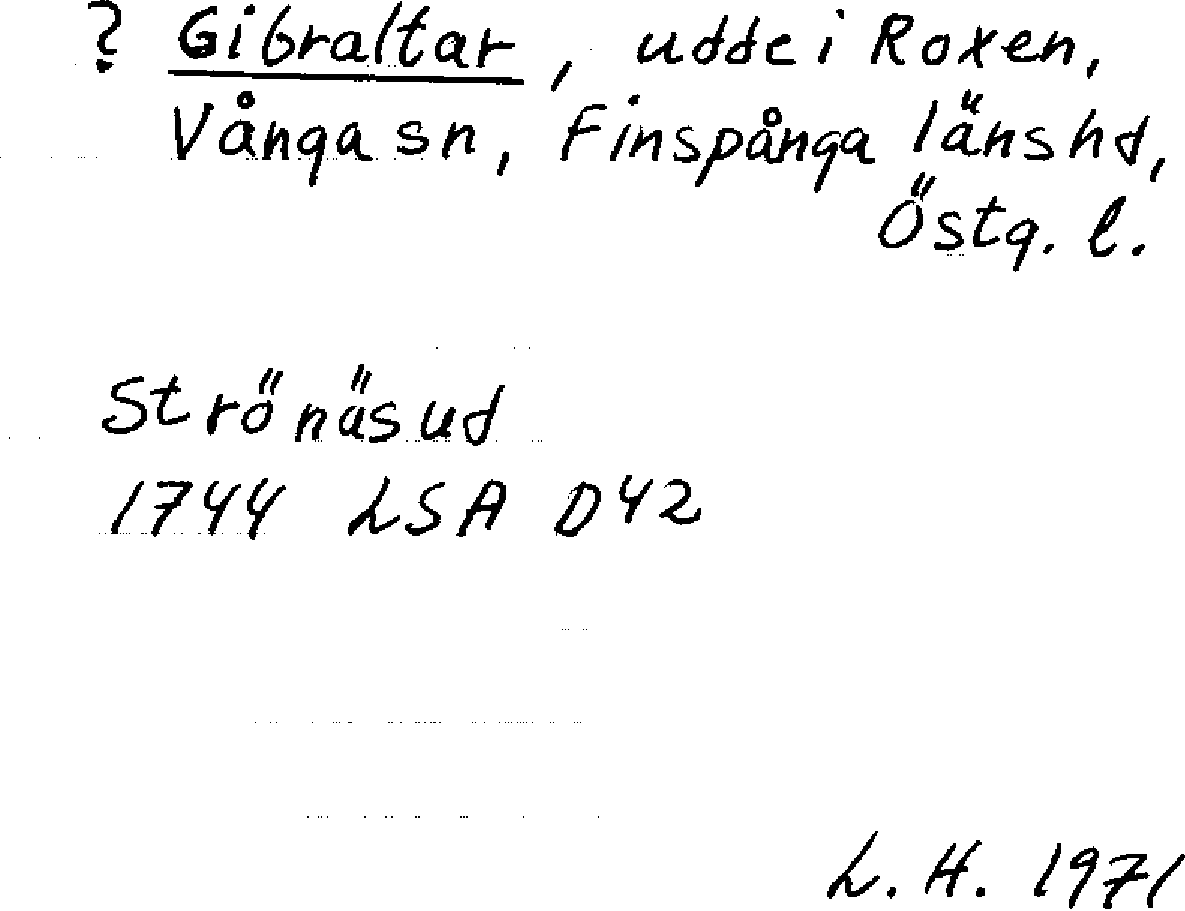 ? Gibraltar, udde i Roxen,
Vånga sn, Finspånga länshd,
Östg. l.
Strönäsud
1744 LSA D42
L. H. 1971